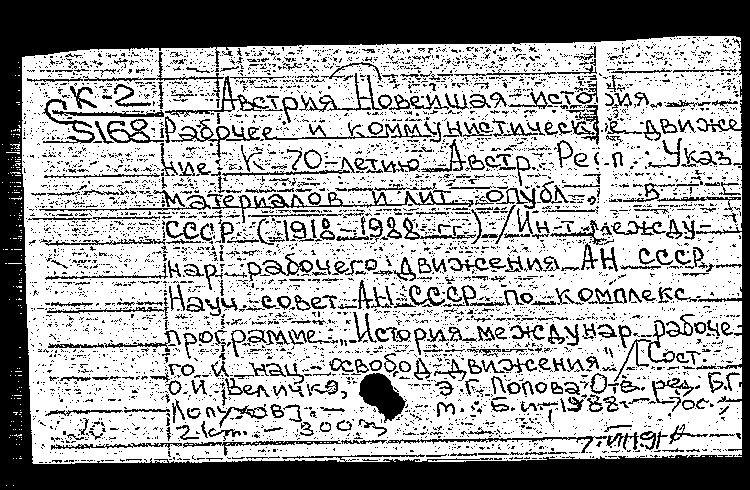 К-2 Австрия Новейшая история
5168 Рабочее и коммунистическое движе
ние К 70-летию Австр. Респ. Указ
материалов и лит., опубл. в
СССР (1918-1988 гг.) / Ин-т между-
нар. рабочего движения АН СССР,
Науч. совет АН СССР по комплекс
программе "История междунар. рабоче-
го и нац-освобод движения" / [Сост.
О.И. Величко, Э.Г. Попова Отв. ред. Б.Г.
М.: Б.и., 1988. - 70с.;
20 21см. - 300